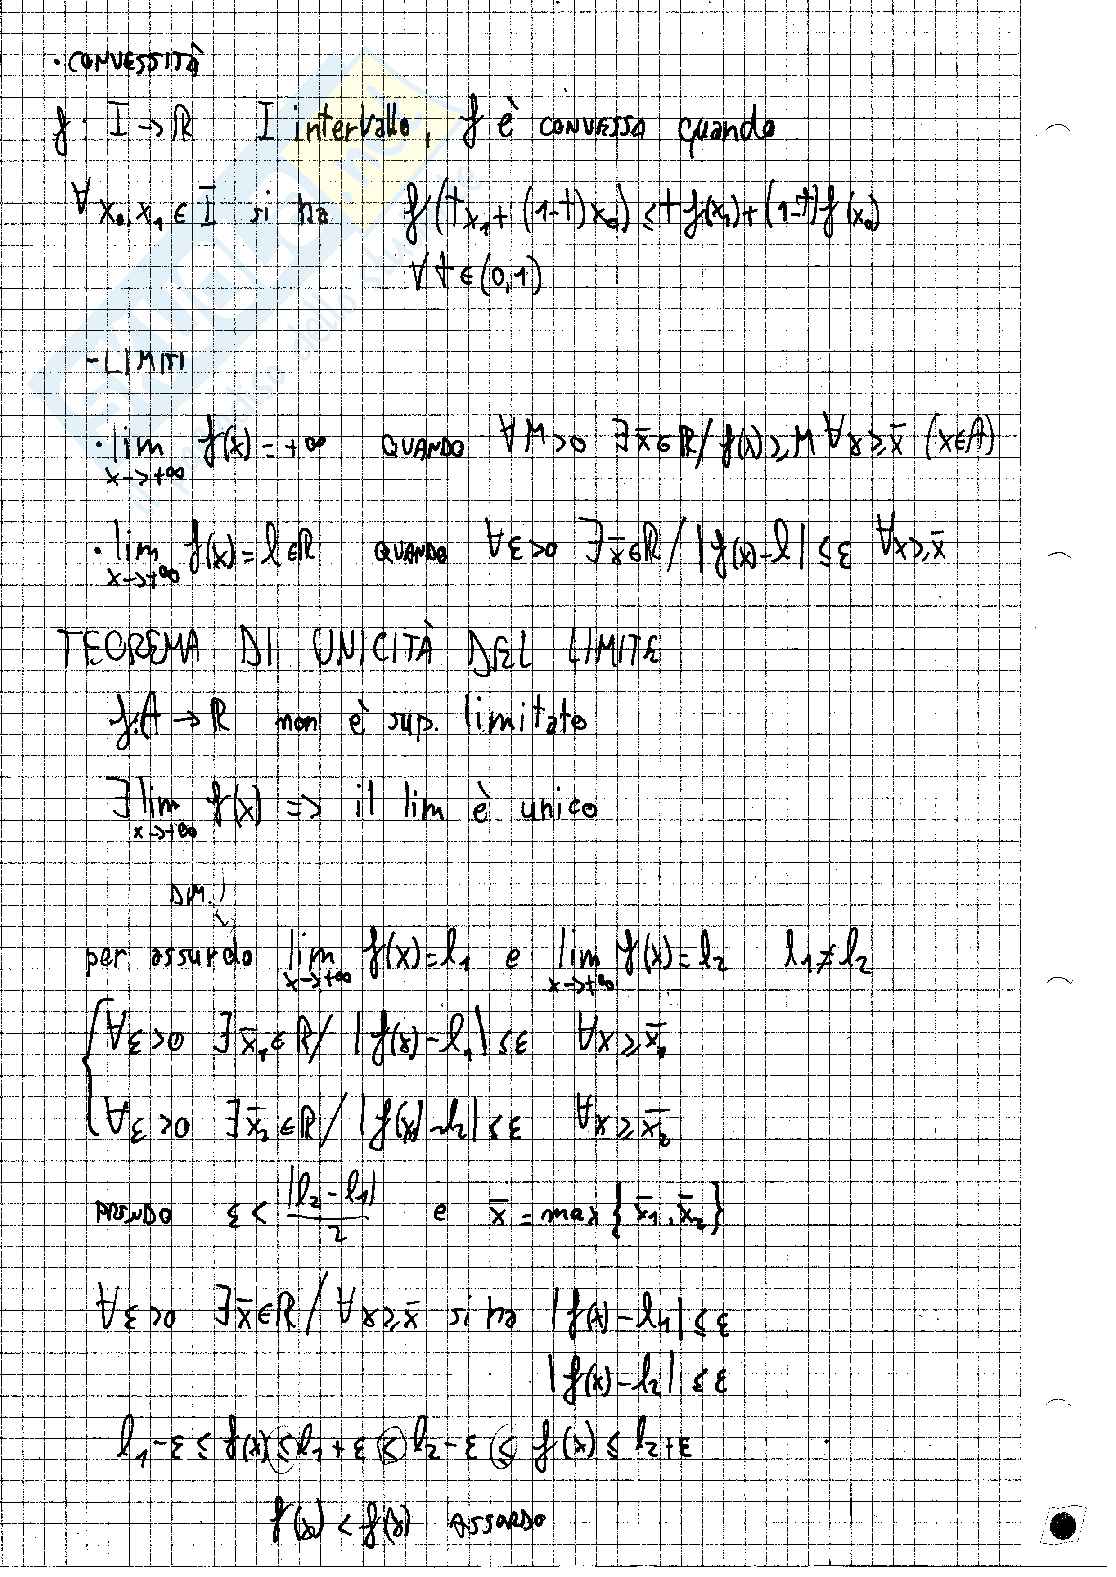 · CONVESSITÀ
f: I → ℝ I intervallo, f è CONVESSA quando
∀ x₀, x₁ ∈ I si ha f(tx₁ + (1-t)x₀) ≤ t f(x₁) + (1-t) f(x₀)
∀ t ∈ (0,1)
- LIMITI
· lim x→+∞ f(x) = +∞ QUANDO ∀ M>0 ∃ x̄ ∈ ℝ / f(x) ≥ M ∀ x ≥ x̄ (x∈A)
· lim x→+∞ f(x) = l ∈ ℝ QUANDO ∀ ε>0 ∃ x̄ ∈ ℝ / |f(x) - l| ≤ ε ∀ x ≥ x̄
TEOREMA DI UNICITÀ DEL LIMITE
f: A → ℝ non è sup. limitato
∃ lim x→+∞ f(x) => il lim è unico
DIM.
per assurdo lim x→+∞ f(x) = l₁ e lim x→+∞ f(x) = l₂ l₁ ≠ l₂
{ ∀ ε>0 ∃ x̄₁ ∈ ℝ / |f(x) - l₁| ≤ ε ∀ x ≥ x̄₁
∀ ε>0 ∃ x̄₂ ∈ ℝ / |f(x) - l₂| ≤ ε ∀ x ≥ x̄₂
PRENDO ε < |l₂ - l₁| / 2 e x̄ = max { x̄₁, x̄₂ }
∀ ε>0 ∃ x̄ ∈ ℝ / ∀ x ≥ x̄ si ha |f(x) - l₁| ≤ ε
|f(x) - l₂| ≤ ε
l₁ - ε ≤ f(x) ≤ l₁ + ε ≤ l₂ - ε ≤ f(x) ≤ l₂ + ε
f(x) < f(x) ASSURDO